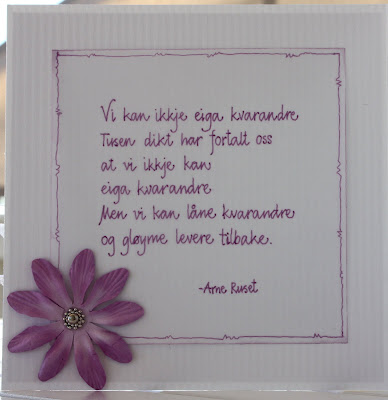 Vi kan ikkje eiga kvarandre
Tusen dikt har fortalt oss
at vi ikkje kan
eiga kvarandre
Men vi kan låne kvarandre
og gløyme levere tilbake.
-Arne Ruset